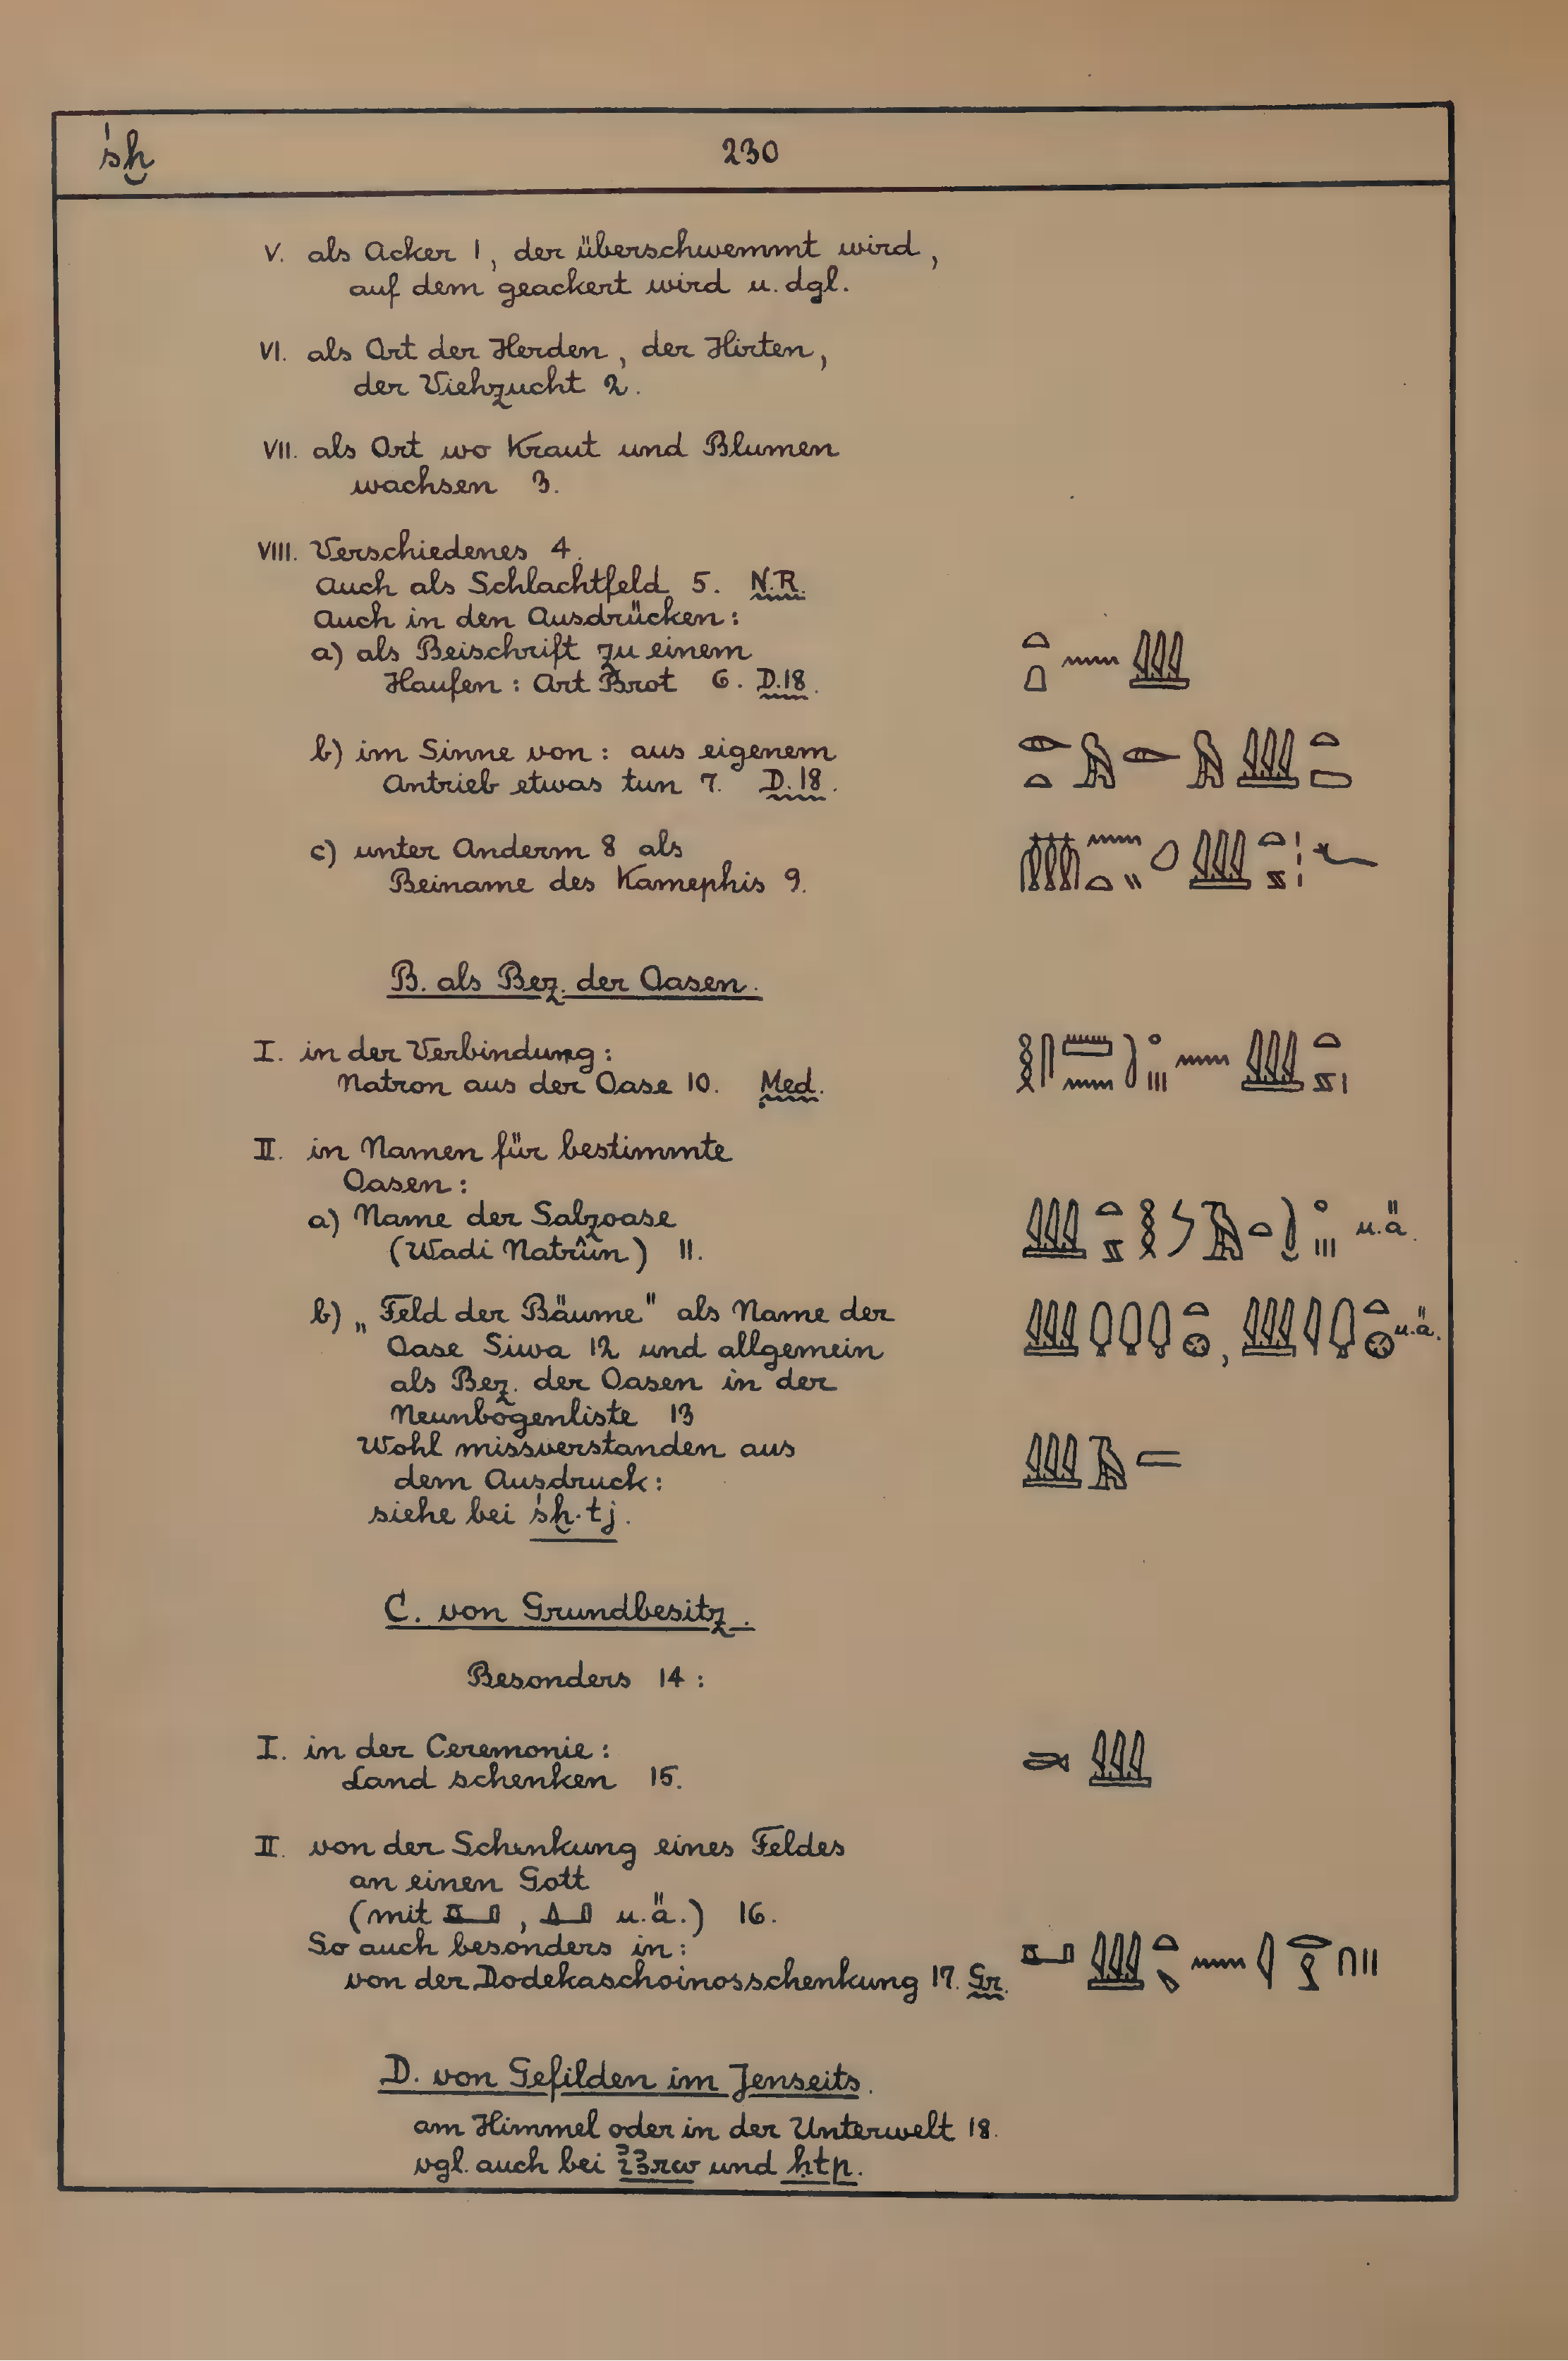 śḫ
230
V. als Acker 1, der überschwemmt wird,
auf dem geackert wird u. dgl.
VI. als Ort der Herden, der Hirten,
der Viehzucht 2.
VII. als Ort wo Kraut und Blumen
wachsen 3.
VIII. Verschiedenes 4.
Auch als Schlachtfeld 5. N.R.
Auch in den Ausdrücken:
a) als Beischrift zu einem
Haufen: Art Brot 6. D.18.
b) im Sinne von: aus eigenem
Antrieb etwas tun 7. D.18.
c) unter Anderm 8 als
Beiname des Kamephis 9.
B. als Bez. der Oasen.
I. in der Verbindung:
Natron aus der Oase 10. Med.
II. in Namen für bestimmte
Oasen:
a) Name der Salzoase
(Wadi Natrûn) 11. u.ä.
b) „Feld der Bäume" als Name der
Oase Siwa 12 und allgemein , u.ä.
als Bez. der Oasen in der
Neunbogenliste 13
Wohl missverstanden aus
dem Ausdruck:
siehe bei śḫ.tj.
C. von Grundbesitz.
Besonders 14:
I. in der Ceremonie:
Land schenken 15.
II. von der Schenkung eines Feldes
an einen Gott
(mit , u.ä.) 16.
So auch besonders in:
von der Dodekaschoinosschenkung 17. Gr.
D. von Gefilden im Jenseits.
am Himmel oder in der Unterwelt 18.
vgl. auch bei i͗ꜣrw und ḥtp.